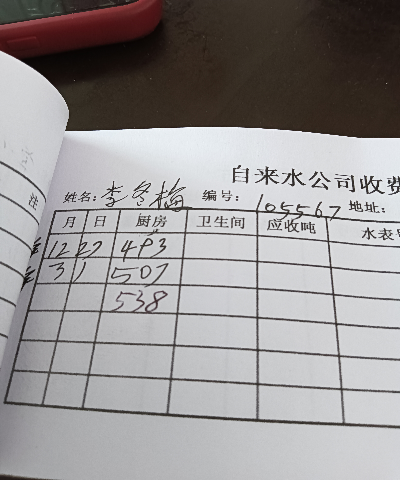 自来水公司收费
姓名: 李冬梅 编号: 105567 地址:
月 日 厨房 卫生间 应收吨 水表
12 27 493
3 1 507
538